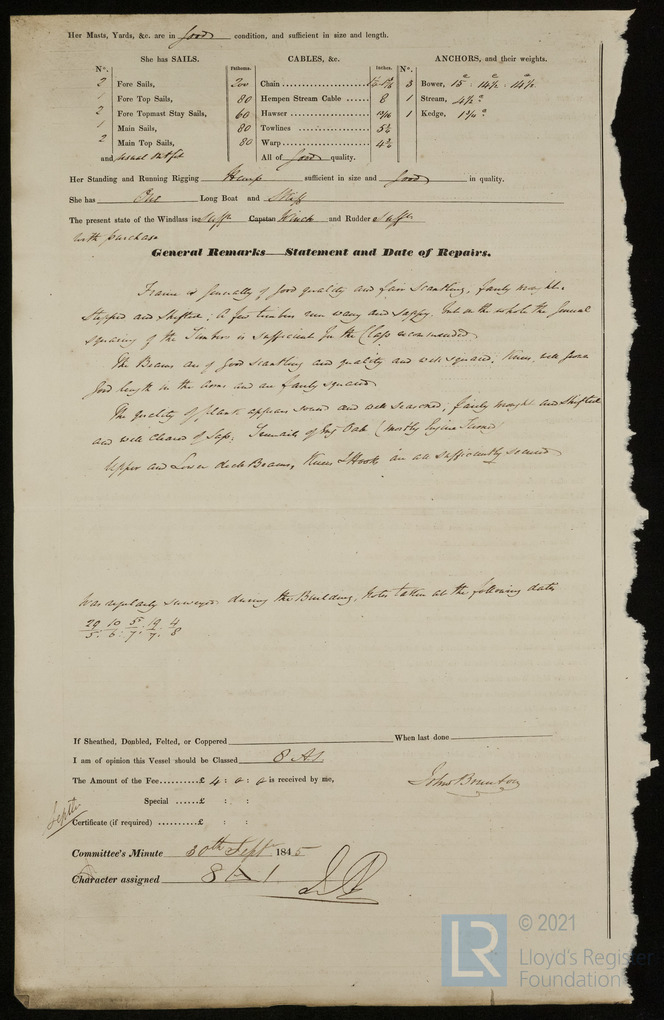 Her Masts, Yards, &c. are in good condition, and sufficient in size and length.
She has SAILS.
CABLES, &c.
ANCHORS, and their weights.
N°.
Fathoms.
Inches.
N°.
2 Fore Sails, 200 Chain 3 Bower, 15 : 14½ : 14½
1 Fore Top Sails, 80 Hempen Stream Cable 8 1 Stream, 4½
2 Fore Topmast Stay Sails, 60 Hawser 1 Kedge,
1 Main Sails, 80 Towlines 5½
2 Main Top Sails, 80 Warp 4½
and usual outfit All of good quality.
Her Standing and Running Rigging Hemp sufficient in size and good in quality.
She has One Long Boat and Skiff
The present state of the Windlass is Sufft Capstan Winch and Rudder Sufft
with purchase
General Remarks—Statement and Date of Repairs.
Frame is generally of good quality and fair scantling, fairly
Stepped and Shifted; A few timbers run waney and sappy. but on the whole the general
squaring of the Timbers is sufficient for the Class recommended
The Beams are of good scantling and quality and well squared; Knees, well grown
good length in the arms and are fairly squared
The quality of plank appears sound and well seasoned; fairly wrought and Shifted
and well cleared of Sap; Treenails of Eng Oak (mostly Engine turned)
Upper and Lower deck Beams, Knees & Hooks are all sufficiently secured
Was regularly surveyed during the Building, Notes taken at the following dates
29/5 : 10/6 : 5/7 : 19/7 : 4/8
If Sheathed, Doubled, Felted, or Coppered When last done
I am of opinion this Vessel should be Classed 8 A1
The Amount of the Fee £ 4 : 0 : 0 is received by me,
John Brunton
Special £ : :
Septr
Certificate (if required) £ : :
Committee's Minute 30th Septr 1845
Character assigned 8 A 1
© 2021
LR
Lloyd's Register
Foundation